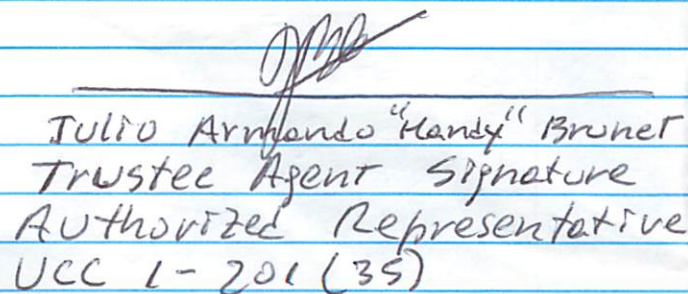 Julio Armando "Handy" Brunet
Trustee Agent Signature
Authorized Representative
UCC 1-201(35)